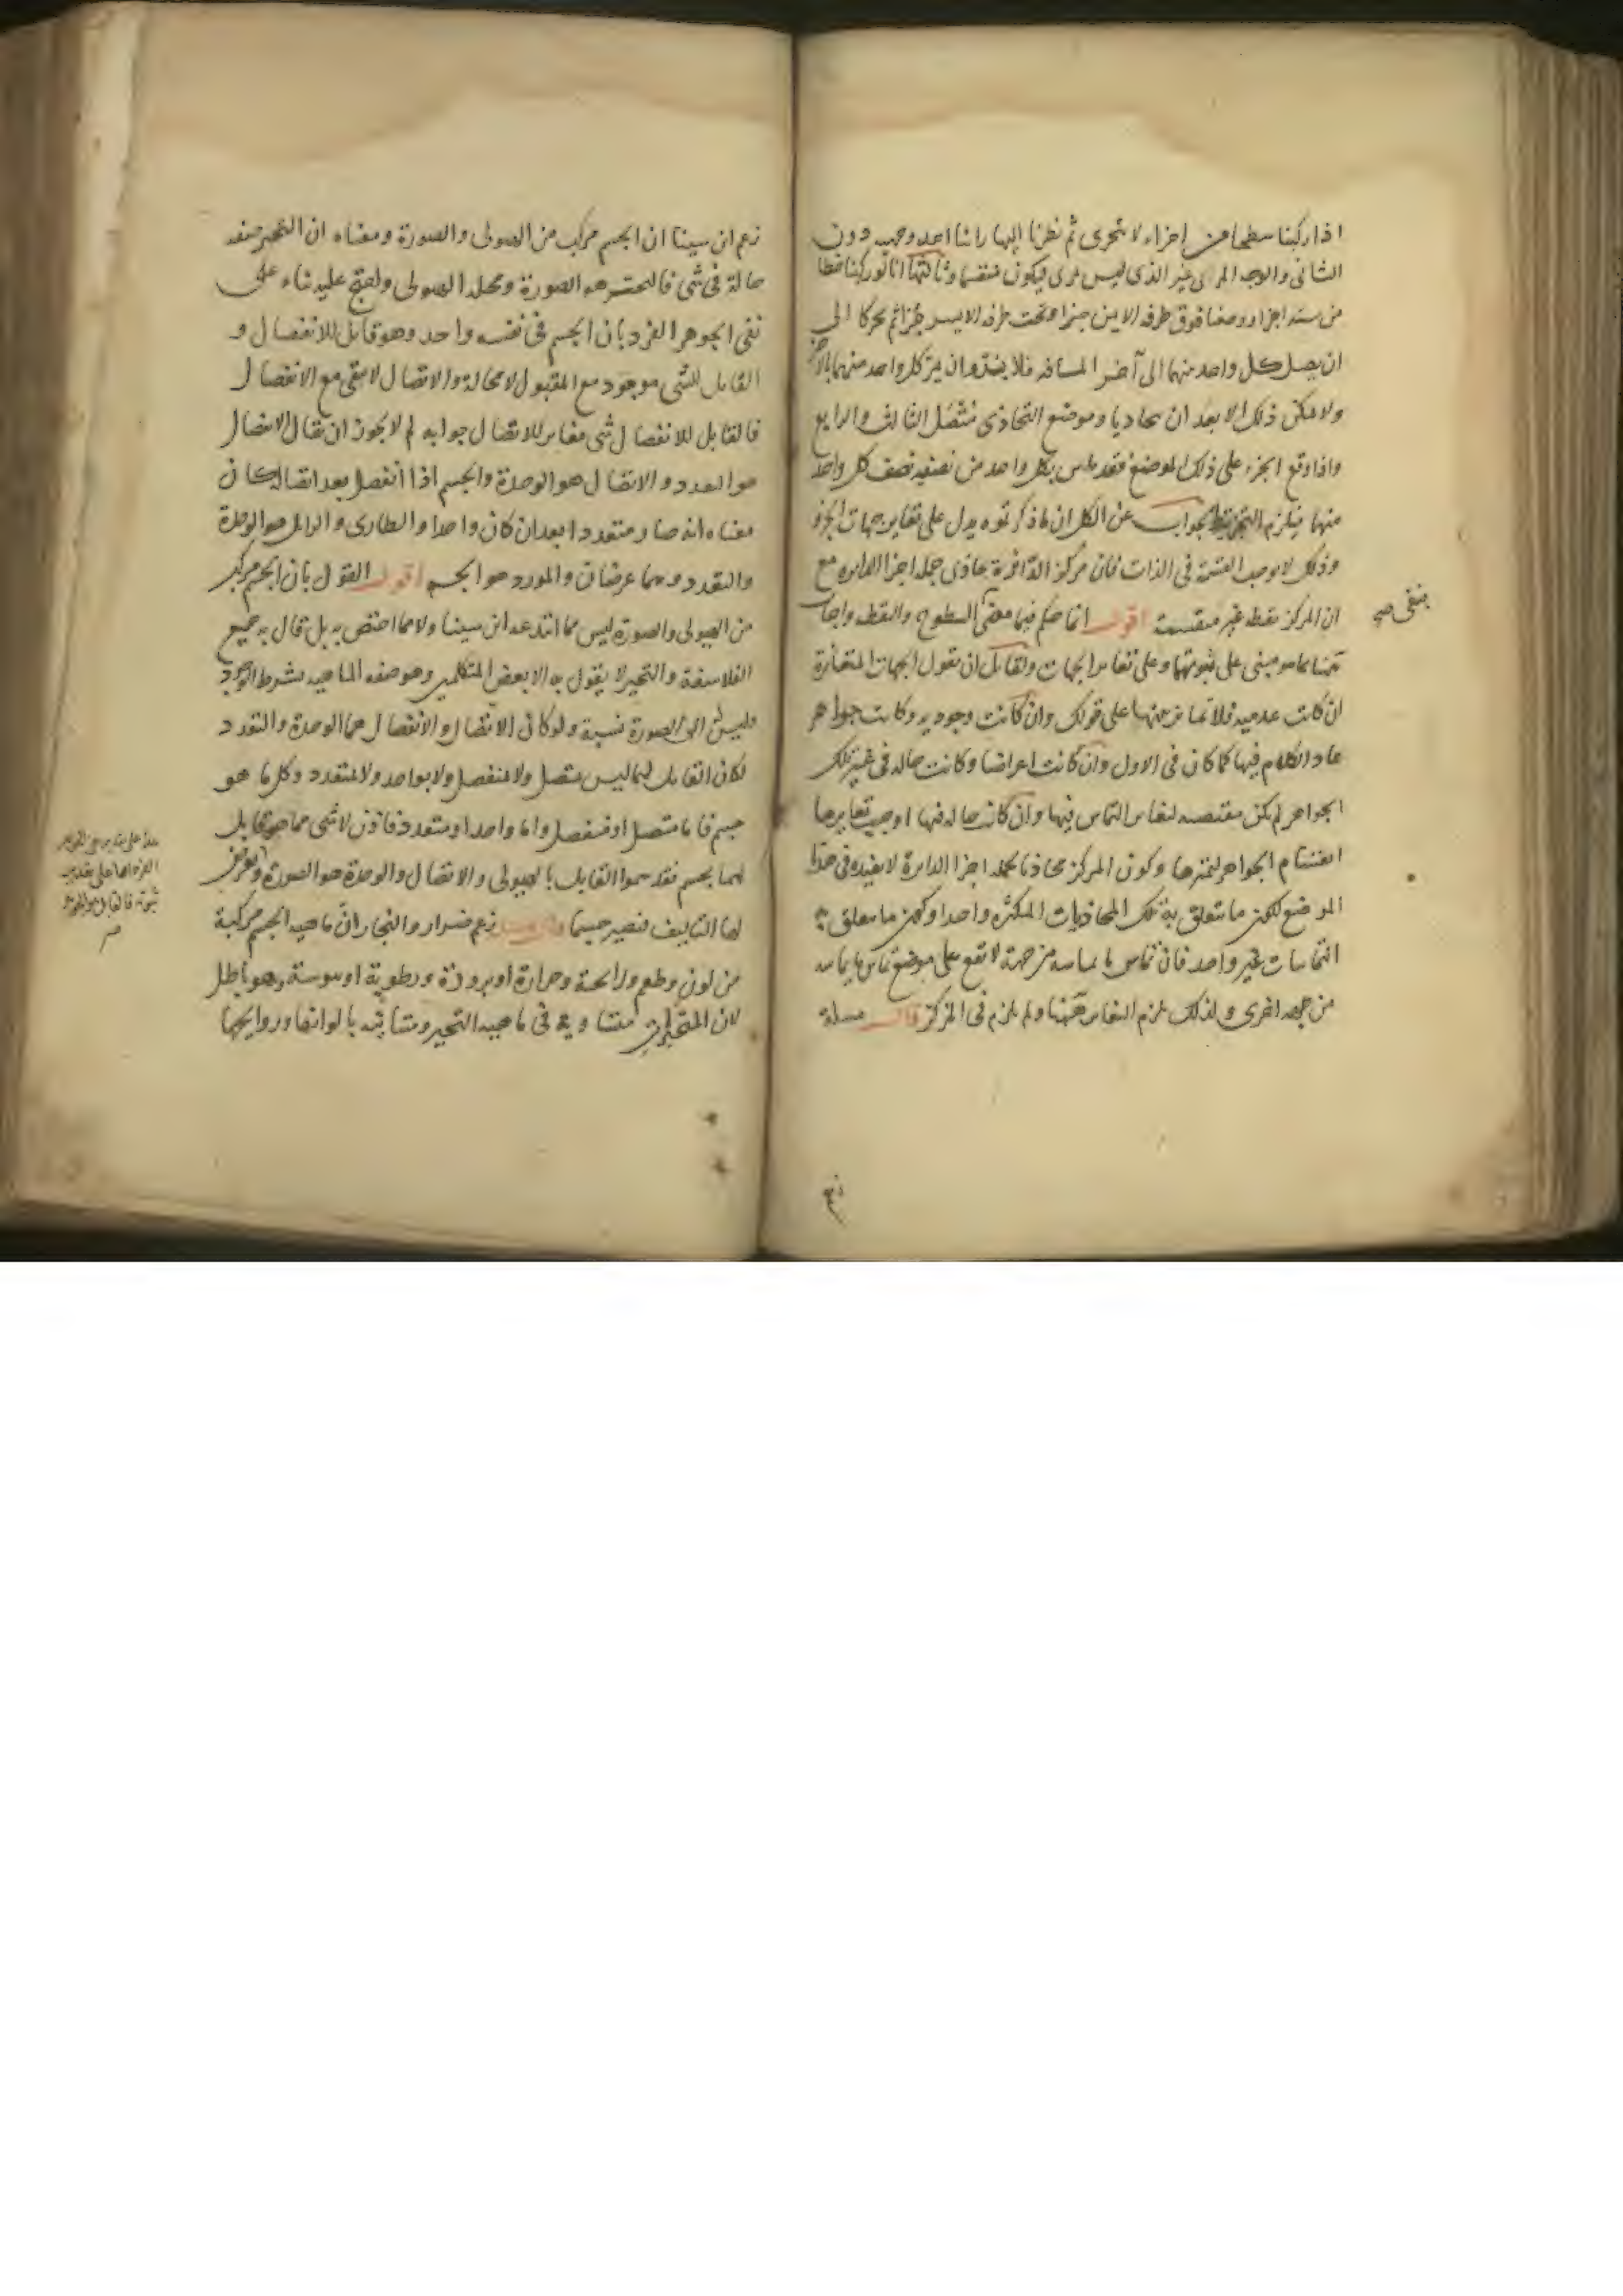 اذا ركبنا سطحا من اجزاء لا تتجزى ثم نظرنا اليها راينا احد وجهيه دون
الثانى والوجه المرى غير الذى ليس بمرى فيكون منقسما وثالثها انا لو ركبنا خطا
من ستة اجزاء ووضعنا فوق طرفه الايمن جزءا وتحت طرفه الايسر جزءا ثم تحركا الى
ان يصل كل واحد منهما الى آخر المسافه فلا بد وان يمر كل واحد منهما بالآخر
ولا يمكن ذلك الا بعد ان يتحاذيا وموضع التحاذى متصل الثالث والرابع
واذا وقع الجزء على ذلك الموضع فقد ماس بكل واحد من نصفيه نصف كل واحد
منها فيلزم التجزية الجواب عن الكل ان ما ذكرتموه يدل على تغاير جهات الجزء
وذلك لا يوجب القسمة فى الذات فان مركز الدائرة يحاذى جملة اجزا الدايره مع
ان المركز نقطه غير منقسمة اقول انما حكم فيما مضى السطوح والنقط واجاب
ينفى صح
هنا بما هو مبنى على ثبوتها وعلى تغاير الجهات ولقائل ان يقول الجهات المتغايرة
ان كانت عدميه فلا تمايز عنها على قولك وان كانت وجوديه وكانت جواهر
عاد الكلام فيها كما كان فى الاول وان كانت اعراضا وكانت حاله فى غير تلك
الجواهر لم تكن مقتضيه لتغاير التماس فيها وان كانت حاله فيها اوجب تغايرها
انقسام الجواهر لتميزها وكون المركز محاذيا لجملة اجزا الدايرة لا يفيده فى هذا
الموضع لكون ما يتعلق به تلك المحاذيات المتكثره واحدا وكون ما يتعلق به
التماسات غير واحد فان تماس ما يماسه من جهة لا تقع على موضع تماس ما يماسه
من جهه اخرى ولذلك يلزم التغاير ههنا ولم يلزم فى المركز قال مسلة
زعم
زعم ابن سينا ان الجسم مركب من الهيولى والصورة ومعناه ان التحيز صفه
حالة فى شى فالتحيز هو الصورة ومحله الهيولى واحتج عليه بناء على
نفى الجوهر الفرد بان الجسم فى نفسه واحد وهو قابل للانفصال و
القابل للشى موجود مع المقبول لا محالة والاتصال لا يبقى مع الانفصال
فالقابل للانفصال شى مغاير للاتصال جوابه لم لا يجوز ان يقال الانفصال
هو التعدد والاتصال هو الوحدة والجسم اذا انفصل بعد اتصاله كان
معناه انه صار متعددا بعد ان كان واحدا والطارى والزايل هو الوحدة
والتعدد وهما عرضان والمورد هو الجسم اقول القول بان الجسم مركب
من الهيولى والصورة ليس مما ابتدعه ابن سينا ولا مما اختص به بل قال به جميع
الفلاسفة والتحيز لا يقول به الا بعض المتكلمين وهو صفه الماهيه بشرط الوجود
وليس له الى الصورة نسبة ولو كان الاتصال والانفصال هما الوحدة والتعدد
لكان القابل لهما ليس بمتصل ولا منفصل ولا بواحد ولا متعدد وكل ما هو
جسم فاما متصل او منفصل واما واحد او متعدد فاذن لا شى مما هو قابل
لهما بجسم فقد سموا القابل بالهيولى والاتصال والوحدة هو الصورة ويعرض
لها التاليف فتصير جسما قال مسلة زعم ضرار والنجار ان ماهيه الجسم مركبة
من لون وطعم ورائحة وحرارة او برودة ورطوبة او يبوسة وهو باطل
لان المتحيزات متساوية فى ماهيه التحيز ومتباينه بالوانها وروايحها
ثبوته فالقابل هو الجوهر